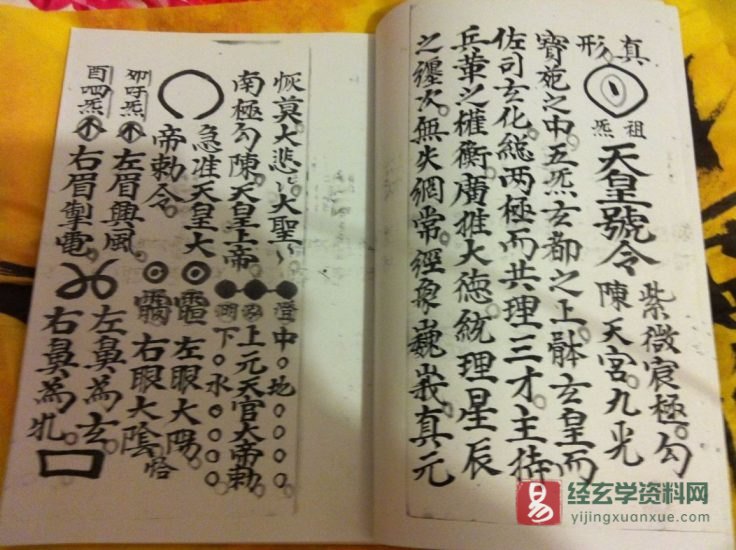 真形
祖炁
天皇號令
紫微宸極勾
陳天宮九光
寶苑之中五炁玄都之上躰玄皇而
佐司玄化總两極而共理三才主持
兵革之權衡廣推大德統理星辰
之纏次無失綱常經巍峩真元
恢莫大悲大聖
南極勾陳天皇上帝
急准天皇大
帝勅令
澄
中地
上元天官大帝勅
下水
左眼大陽
右眼大陰
左眉興風
右眉掣電
左鼻為玄
右鼻為牝
易
经玄学资料网
yijingxuanxue.com